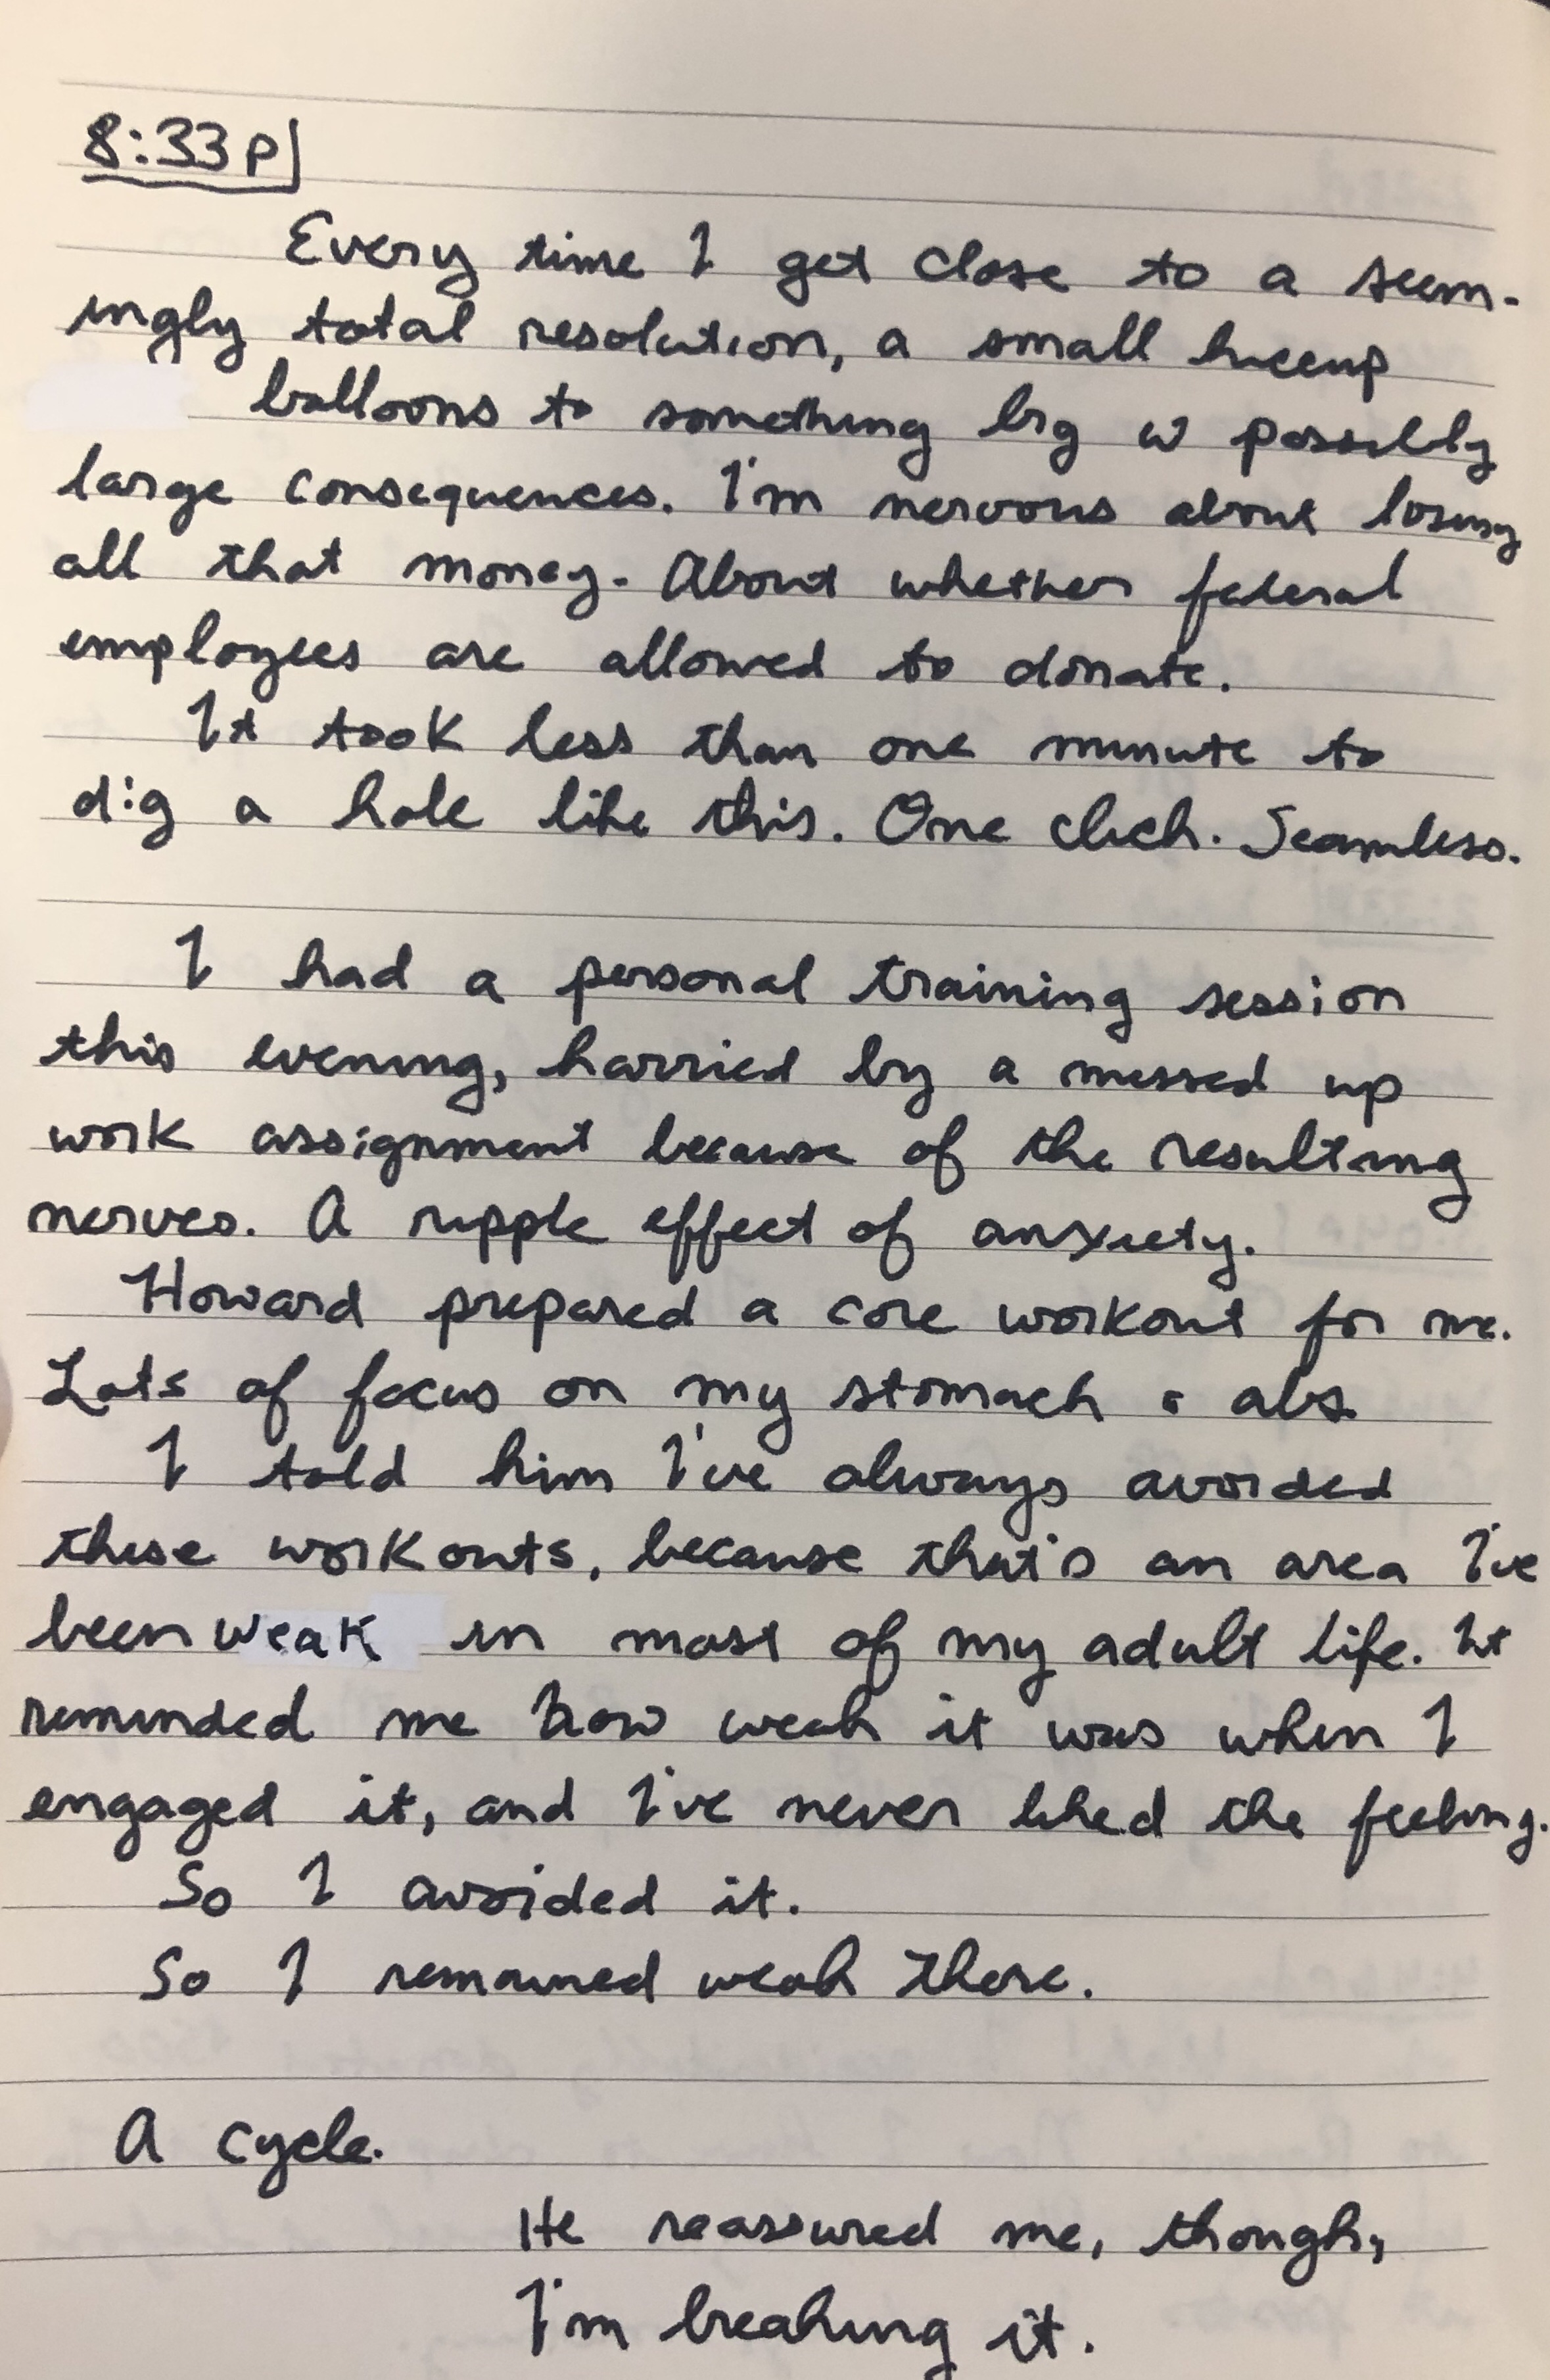 8:33p
Every time I get close to a seem-
ingly total resolution, a small hiccup
balloons to something big w possibly
large consequences. I'm nervous about losing
all that money. About whether federal
employees are allowed to donate.
It took less than one minute to
dig a hole like this. One click. Seamless.
I had a personal training session
this evening, harried by a messed up
work assignment because of the resulting
nerves. A ripple effect of anxiety.
Howard prepared a core workout for me.
Lots of focus on my stomach & abs.
I told him I've always avoided
these workouts, because that's an area I've
been weak in most of my adult life. It
reminded me how weak it was when I
engaged it, and I've never liked the feeling.
So I avoided it.
So I remained weak there.
A cycle.
He reassured me, though,
I'm breaking it.